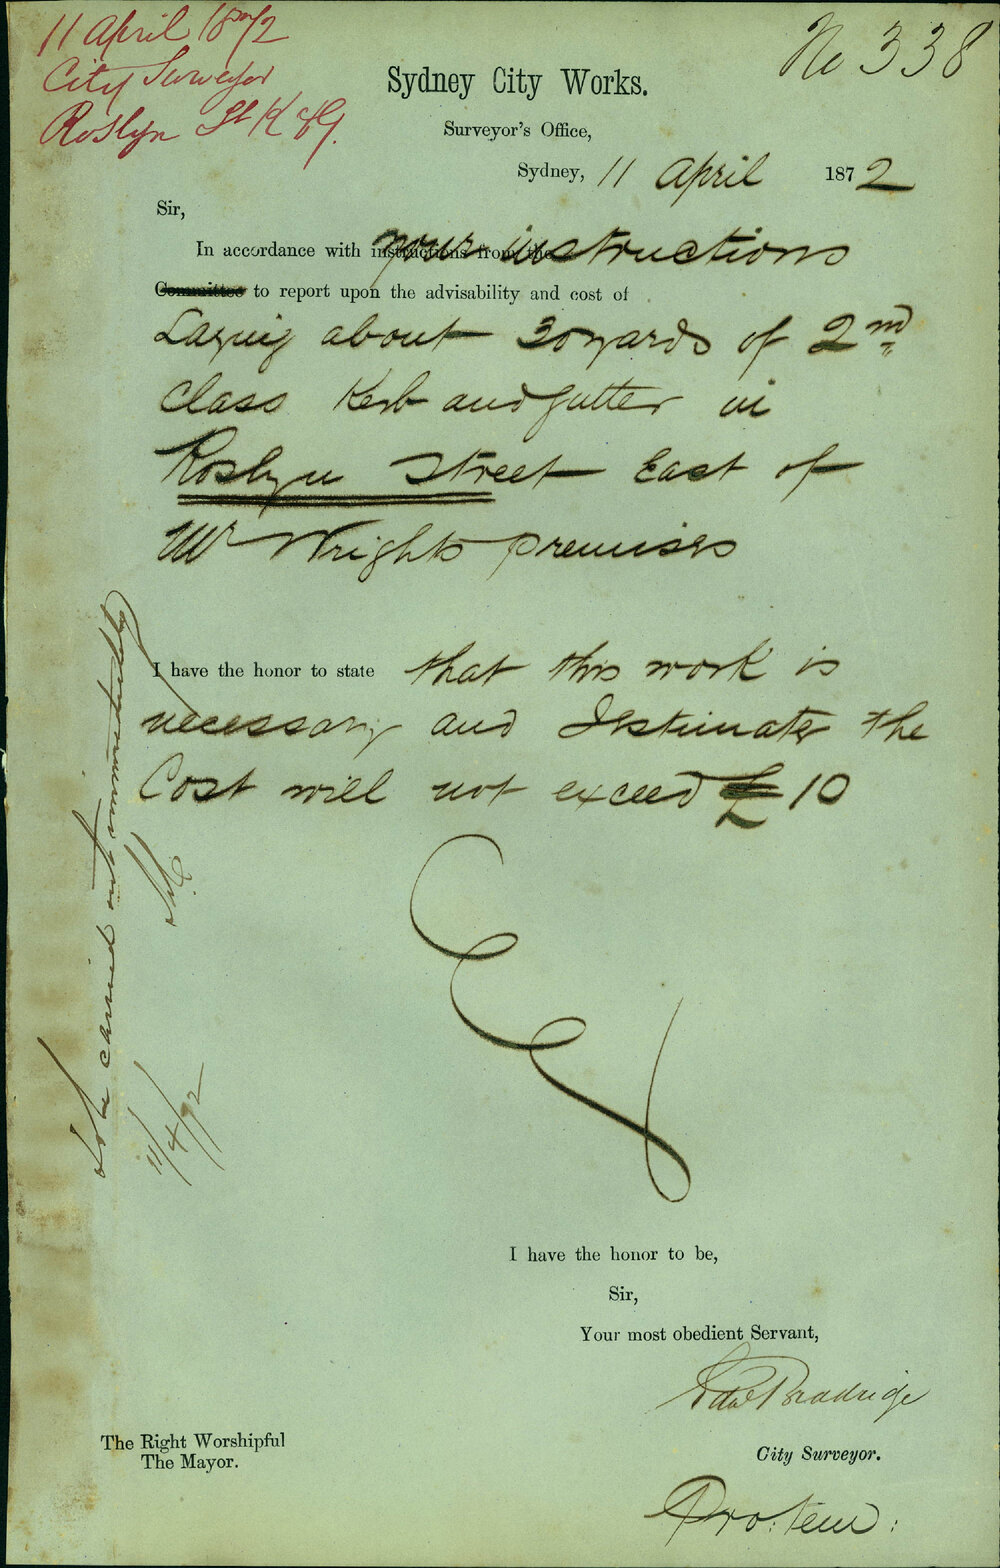 11 April 1872
City Surveyor
Roslyn St K & G.
No 338
Sydney City Works.
Surveyor's Office,
Sydney, 11 April 1872
Sir,
In accordance with instructions from the your instructions
Committee to report upon the advisability and cost of
Laying about 30 yards of 2nd
Class Kerb and gutter in
Roslyn Street East of
Mr Wrights premises
I have the honor to state that this work is
necessary and I estimate the
Cost will not exceed £10
To be carried out immediately
11/4/72
I have the honor to be,
Sir,
Your most obedient Servant,
Edwd Bradridge
City Surveyor.
Pro: tem:
The Right Worshipful
The Mayor.